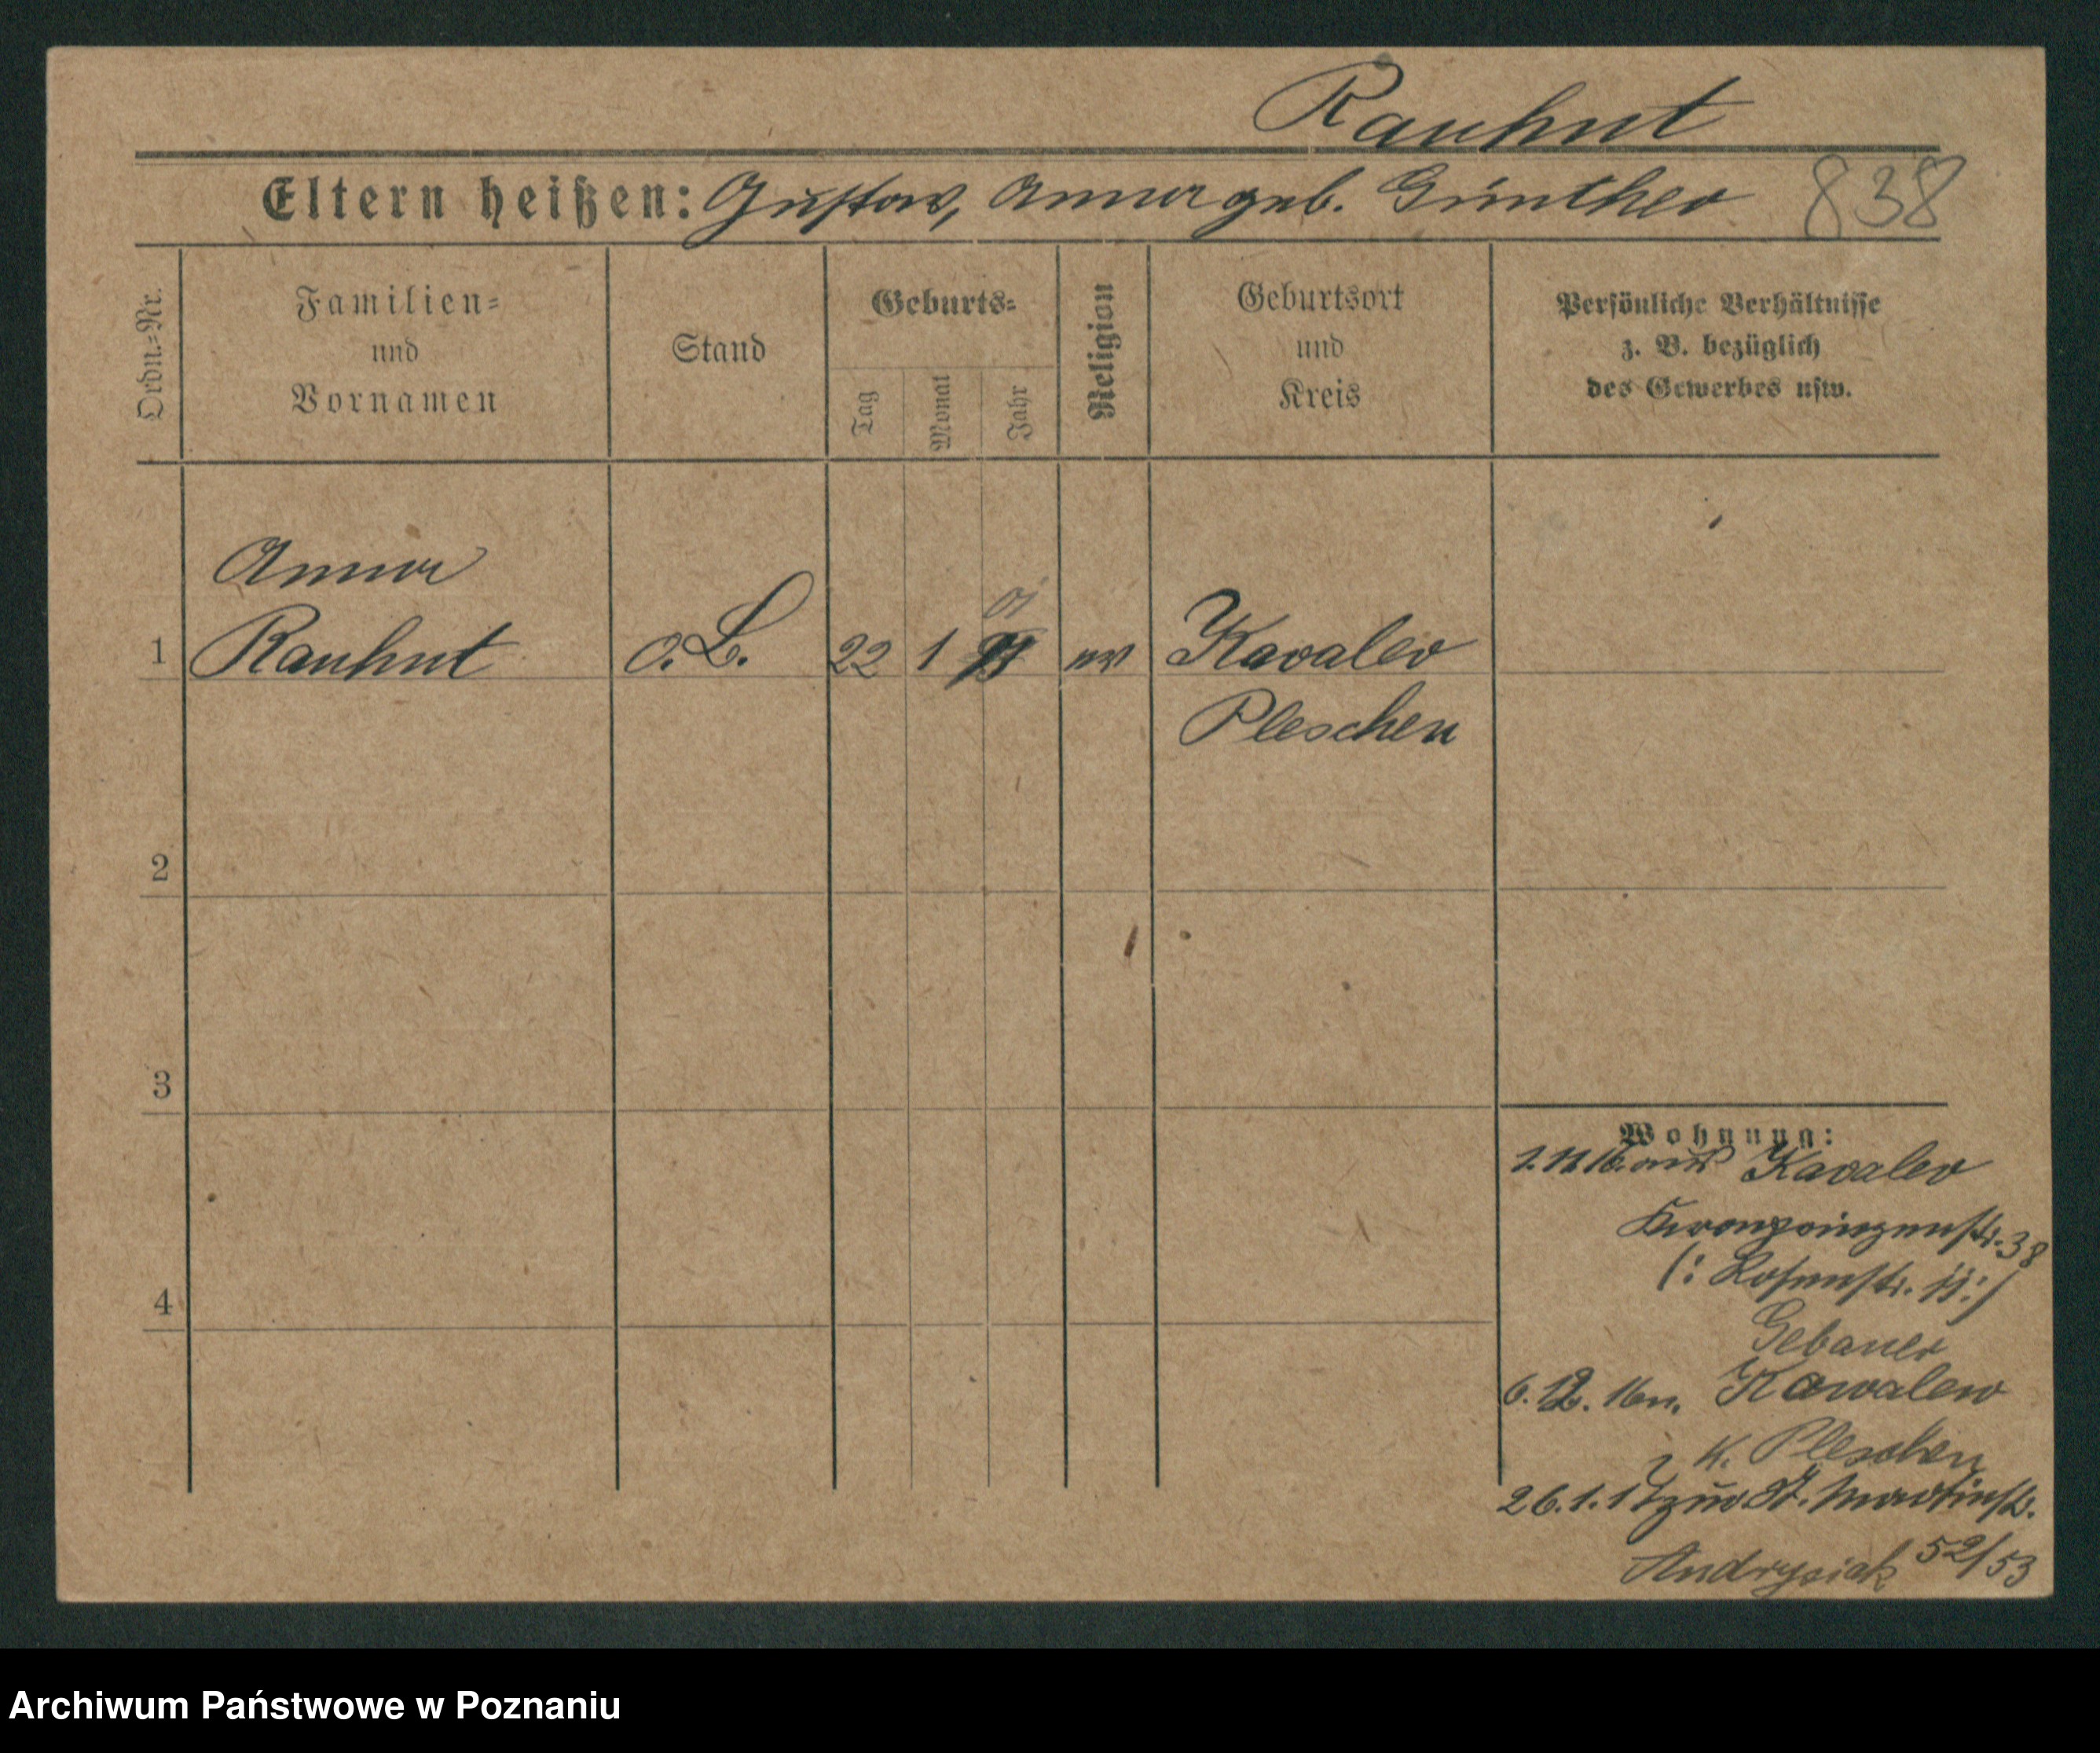 Rauhut
Eltern heißen: Gustav, Anna geb. Günther 838
Ordn.=Nr.
Familien=
und
Vornamen
Stand
Geburts=
Tag
Monat
Jahr
Religion
Geburtsort
und
Kreis
Persönliche Verhältnisse
z. B. bezüglich
des Gewerbes usw.
Anna
1 Rauhut o. B. 22 1 ev Kavalev
Pleschen
2
3
4
Wohnung:
1.11.16. aus Kavalev
Kronprinzenstr. 38
(: Rosenstr. 11:)
Gebauer
6.12.16 n. Kawalew
K. Pleschen
26.1.17 zur St. Martinstr.
Andrysiak 52/53
Archiwum Państwowe w Poznaniu